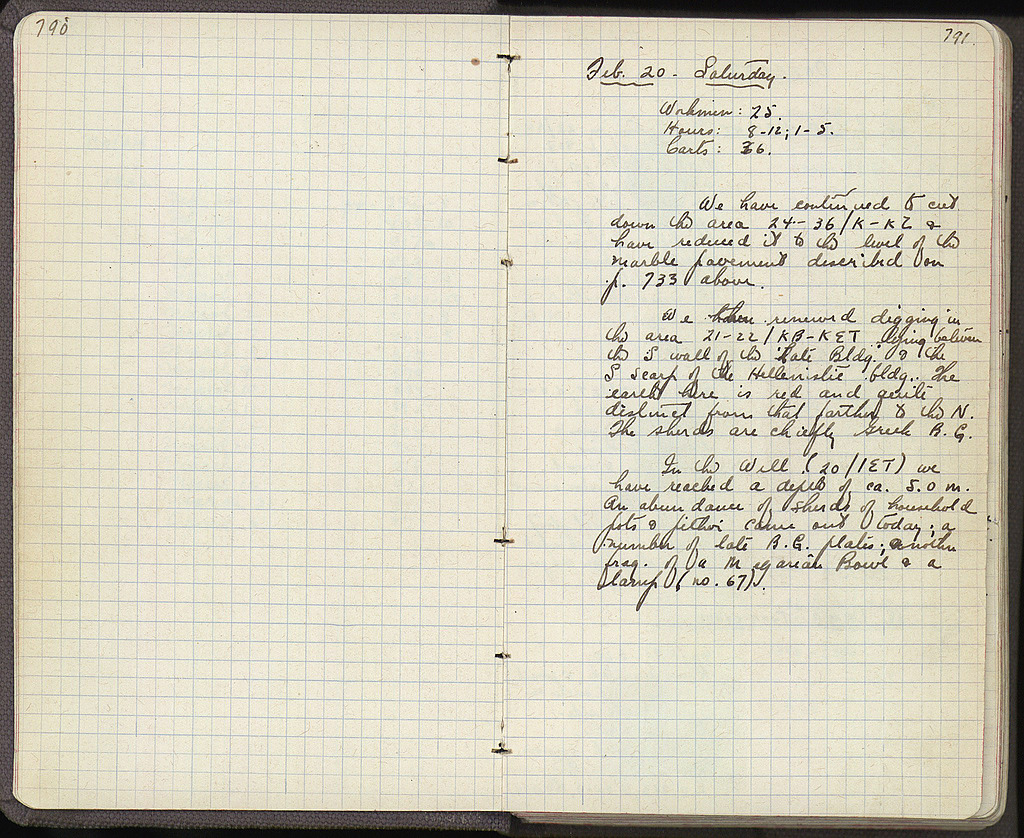 790
791.
Feb. 20 - Saturday.
Workmen: 25.
Hours: 8-12; 1-5.
Carts: 36.
We have continued to cut
down the area 24-36/K-KZ &
have reduced it to the level of the
marble pavement described on
p. 733 above.
We renewed digging in
the area 21-22/KB-KET lying between
the S wall of the "Late Bldg." & the
S scarp of the Hellenistic bldg. The
earth here is red and quite
distinct from that farther to the N.
The sherds are chiefly Greek B.G.
In the Well (20/IET) we
have reached a depth of ca. 5.0 m.
An abundance of sherds of household
pots & pithoi came out today; a
number of late B.G. plates; another
frag. of a Megarian Bowl & a
lamp (no. 67).